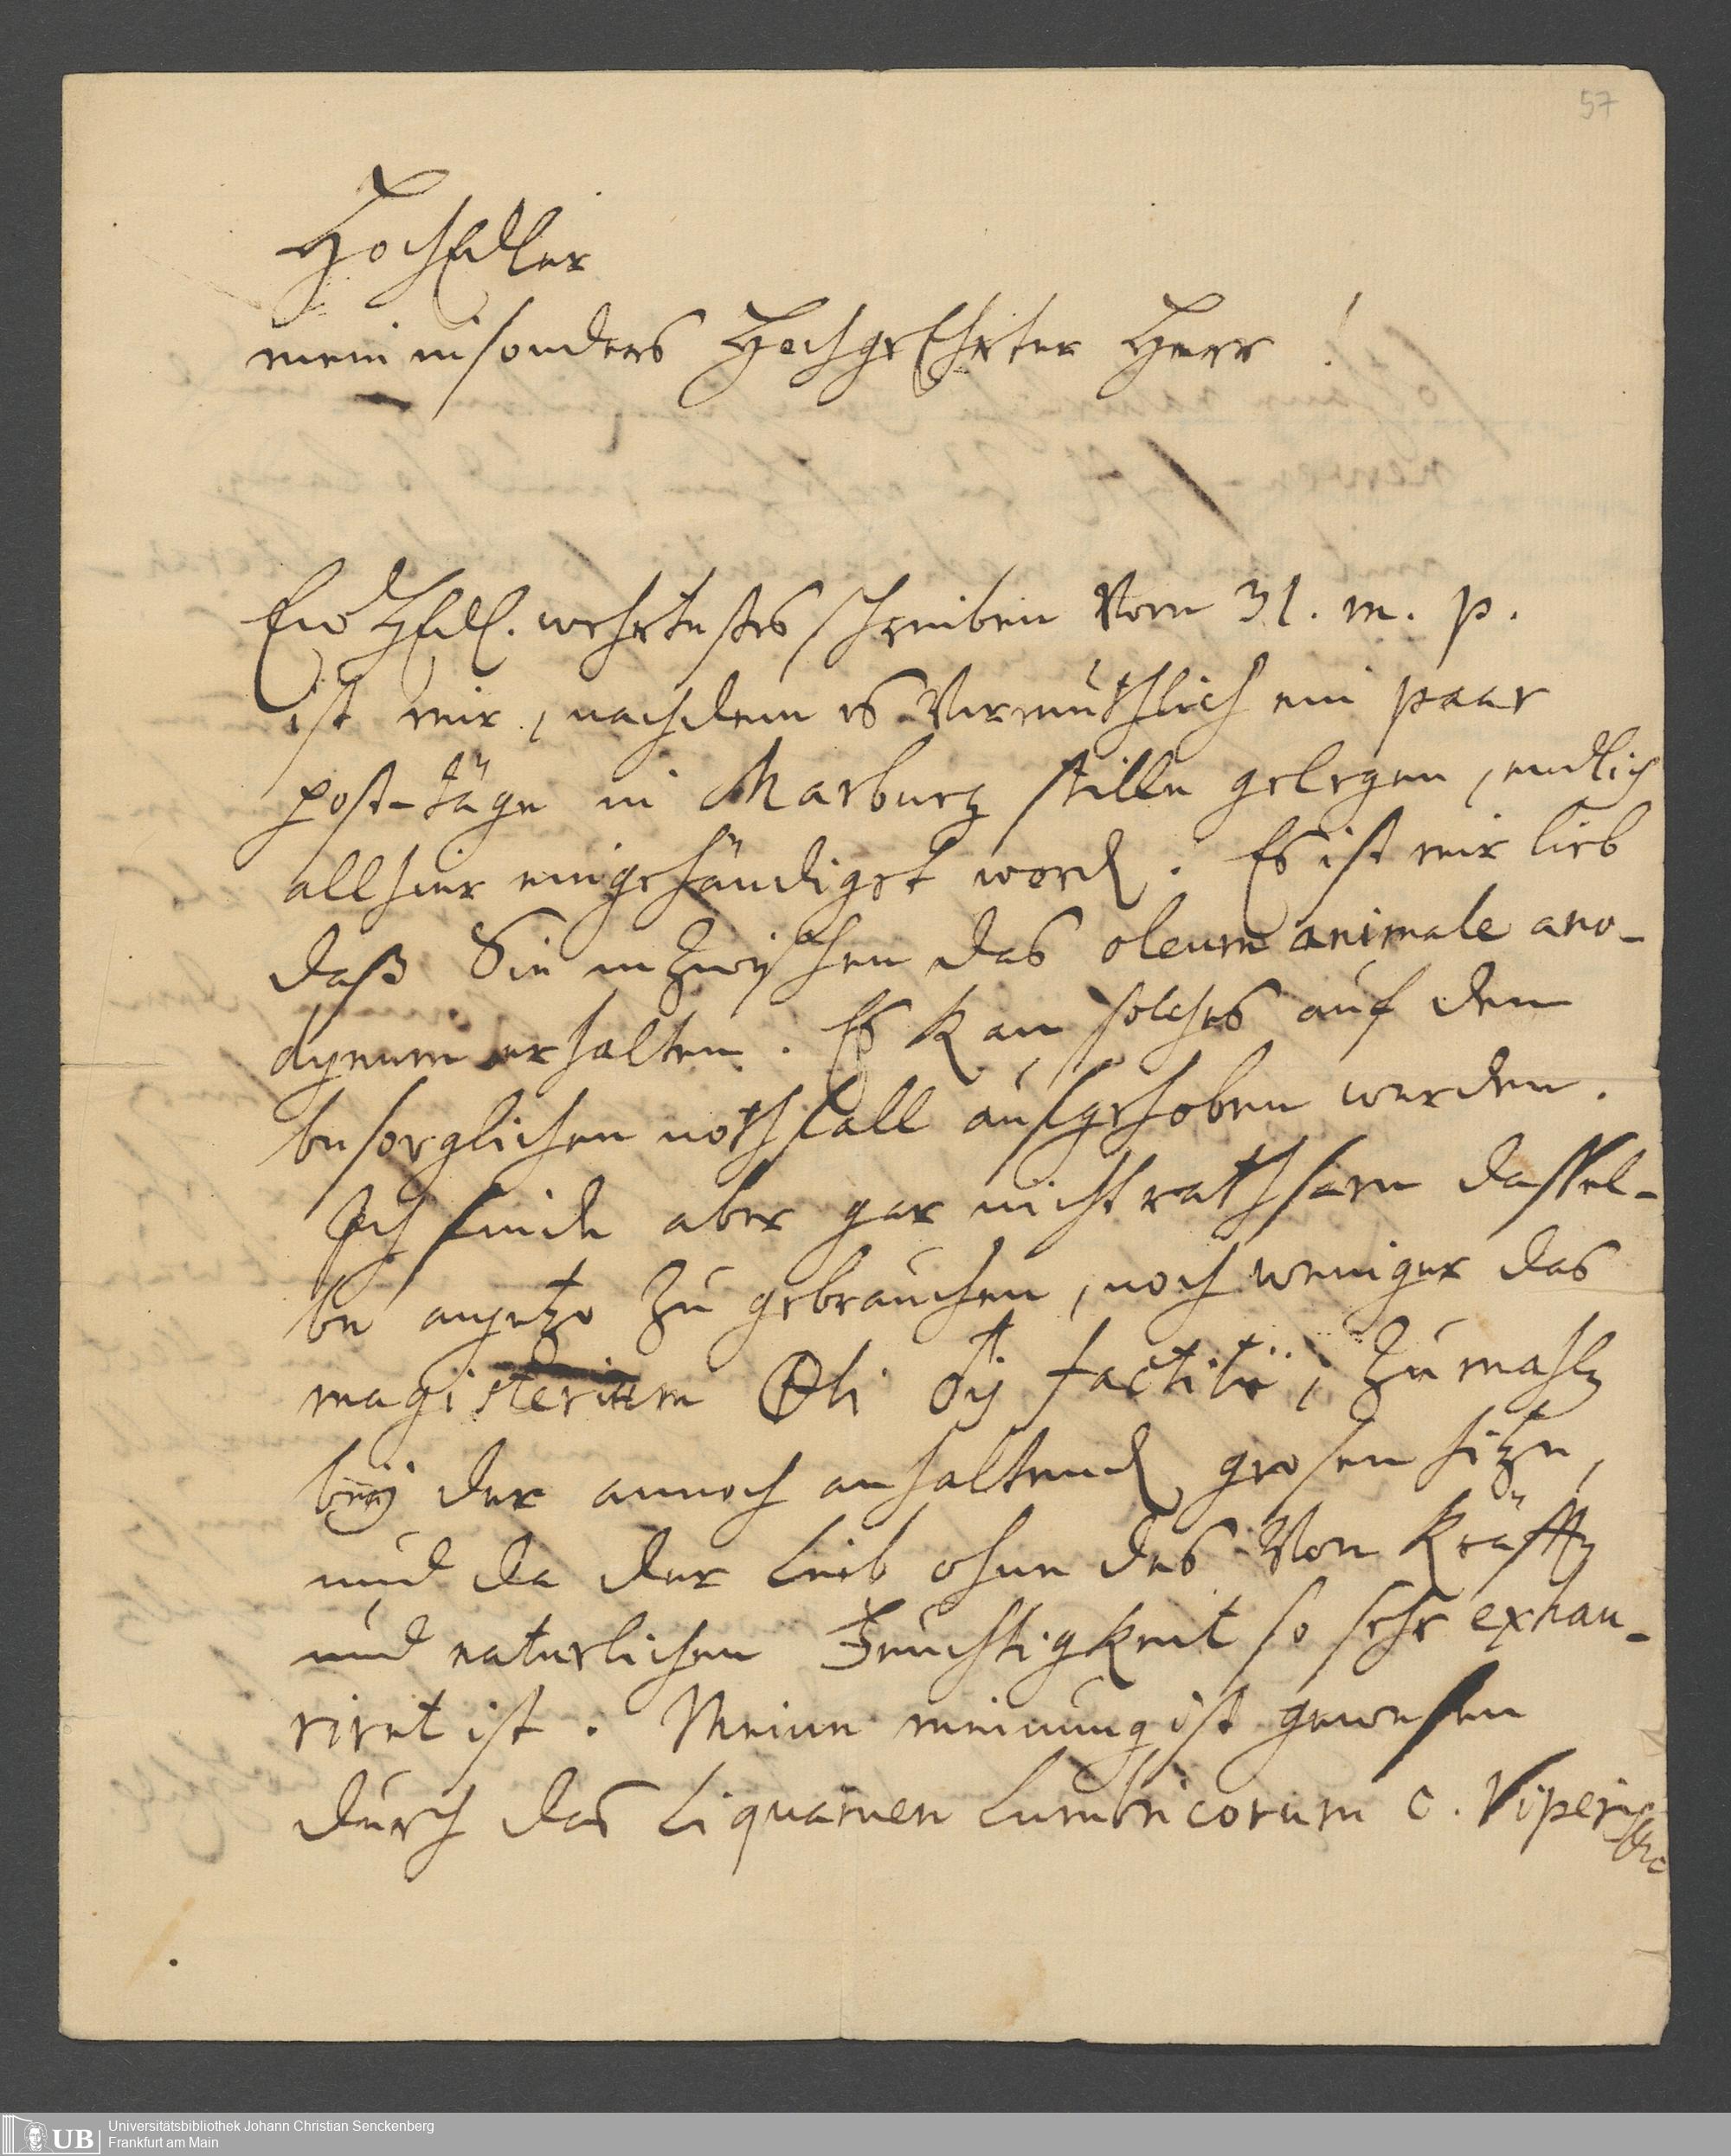 57
HochEdler
mein insonders HochgeEhrter Herr!
Ew HEdl. wehrtestes schreiben Vom 31. m. p.
ist mir, nachdem es Vermuthlich ein paar
post-täge in Marburg stille gelegen, endlich
allhier eingehändiget word. Es ist mir lieb
daß Sie inzwischen das oleum animale ano-
dynum erhalten. Es kan solches auf den
besorglichen nothfall aufgehoben werden.
Ich finde aber gar nicht rathsam dassel-
be anjetzo zu gebrauchen, noch weniger das
magisterium factitii, zumahlen
beÿ der annoch anhaltend grosen hitze,
und da der Leib ohne des Von Kräfften
und naturlichen Feuchtigkeit so sehr exhau-
riret ist. Meine meinung ist gewesen
durch das Liquamen Lumbricorum c. Viperis &c
UB Universitätsbibliothek Johann Christian Senckenberg
Frankfurt am Main